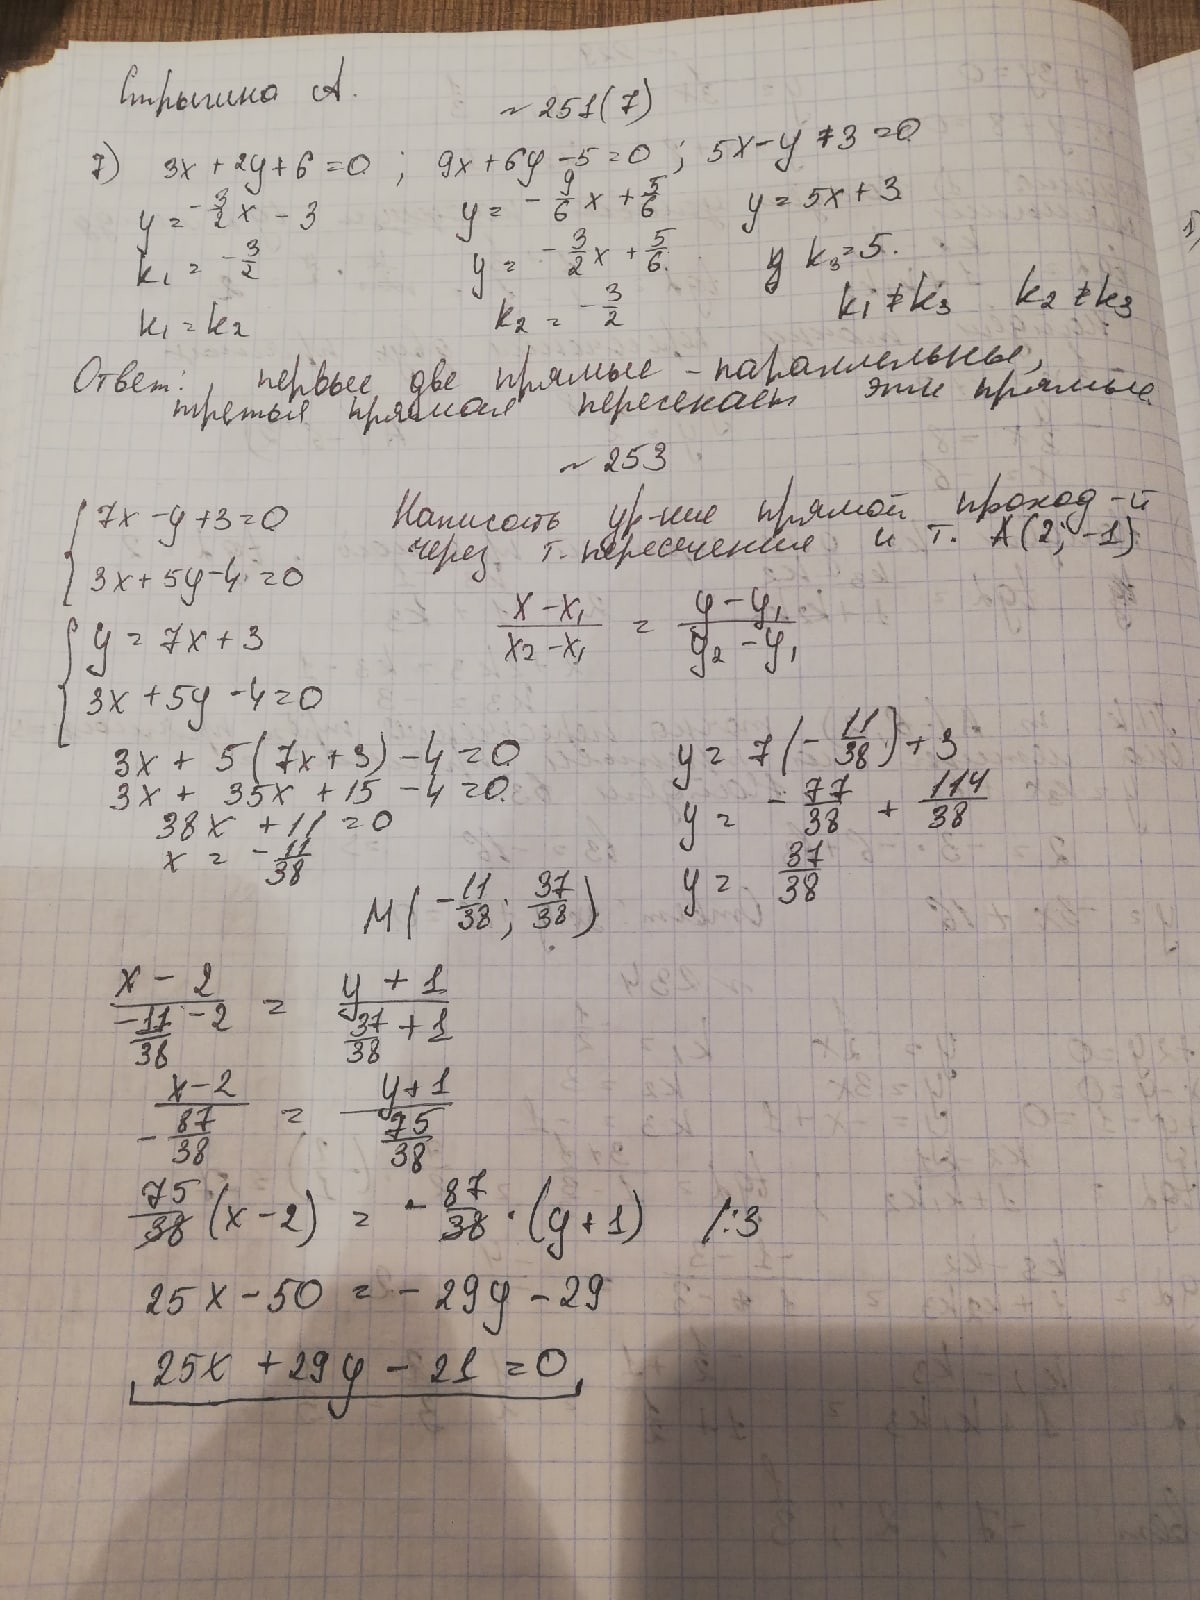 Стрыгина А.
~ 251(7)
7) 3x + 2y + 6 = 0 ; 9x + 6y - 5 = 0 ; 5x - y + 3 = 0
y = -3/2 x - 3 y = -9/6 x + 5/6 y = 5x + 3
k1 = -3/2 y = -3/2 x + 5/6 k3 = 5.
k1 = k2 k2 = -3/2 k1 ≠ k3 k2 ≠ k3
Ответ: , первые две прямые - параллельны,
третья прямая пересекает эти прямые.
~ 253
7x - y + 3 = 0 Написать ур-ние прямой проход-й
3x + 5y - 4 = 0 через т. пересечения и т. A(2; -1)
y = 7x + 3 (x - x1)/(x2 - x1) = (y - y1)/(y2 - y1)
3x + 5y - 4 = 0
3x + 5(7x + 3) - 4 = 0 y = 7(-11/38) + 3
3x + 35x + 15 - 4 = 0 y = -77/38 + 114/38
38x + 11 = 0 y = 37/38
x = -11/38
M(-11/38 ; 37/38)
(x - 2)/(-11/38 - 2) = (y + 1)/(37/38 + 1)
(x - 2)/(-87/38) = (y + 1)/(75/38)
75/38 (x - 2) = -87/38 · (y + 1) /:3
25x - 50 = - 29y - 29
25x + 29y - 21 = 0